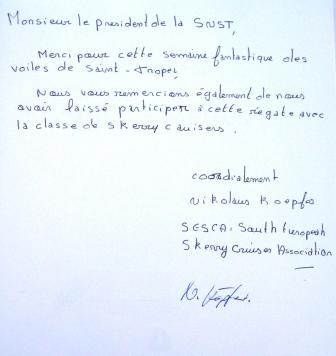 Monsieur le president de la SNST,
Merci pour cette semaine fantastique des
voiles de Saint-Tropez,
Nous vous remercions également de nous
avoir laissé participer a cette régate avec
la classe de Skerry cruisers.
coordialement
Nikolaus Koepfer
SESCA. South European
Skerry Cruiser Association